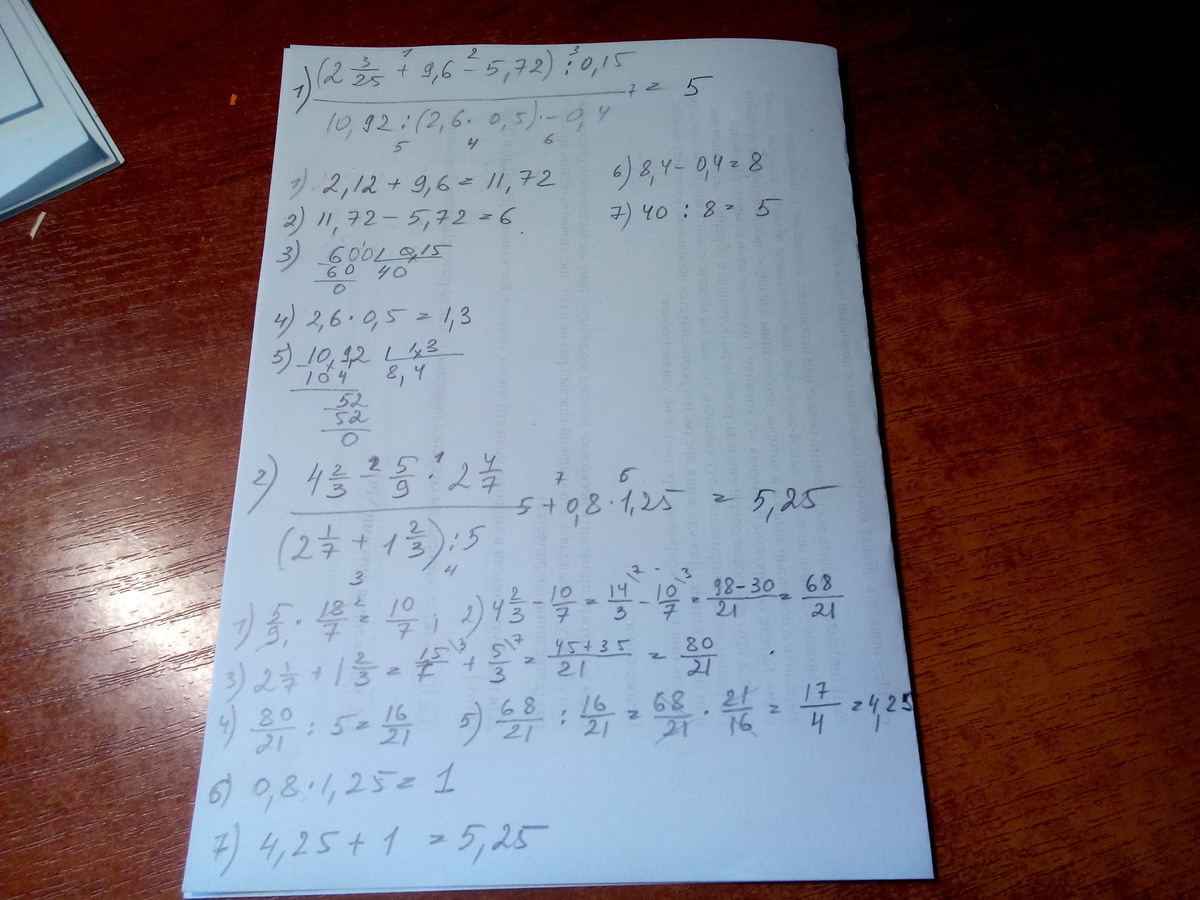 1) (2 3/25 + 9,6 - 5,72) : 0,15
1 2 3
7 = 5
10,92 : (2,6 · 0,5) · - 0,4
5 4 6
1) 2,12 + 9,6 = 11,72
6) 8,4 - 0,4 = 8
2) 11,72 - 5,72 = 6
7) 40 : 8 = 5
3) 600 0,15
60 40
0
4) 2,6 · 0,5 = 1,3
5) 10,92 1,3
104 8,4
52
52
0
2) 4 2/3 - 5/9 · 2 4/7
2 1
5 + 0,8 · 1,25 = 5,25
7 6
(2 1/7 + 1 2/3) : 5
3 4
1) 5/9 · 18/7 = 10/7 ; 2) 4 2/3 - 10/7 = 14/3 \7 - 10/7 \3 = 98-30/21 = 68/21
3) 2 1/7 + 1 2/3 = 15/7 \3 + 5/3 \7 = 45+35/21 = 80/21
4) 80/21 : 5 = 16/21 5) 68/21 : 16/21 = 68/21 · 21/16 = 17/4 = 4,25
6) 0,8 · 1,25 = 1
7) 4,25 + 1 = 5,25